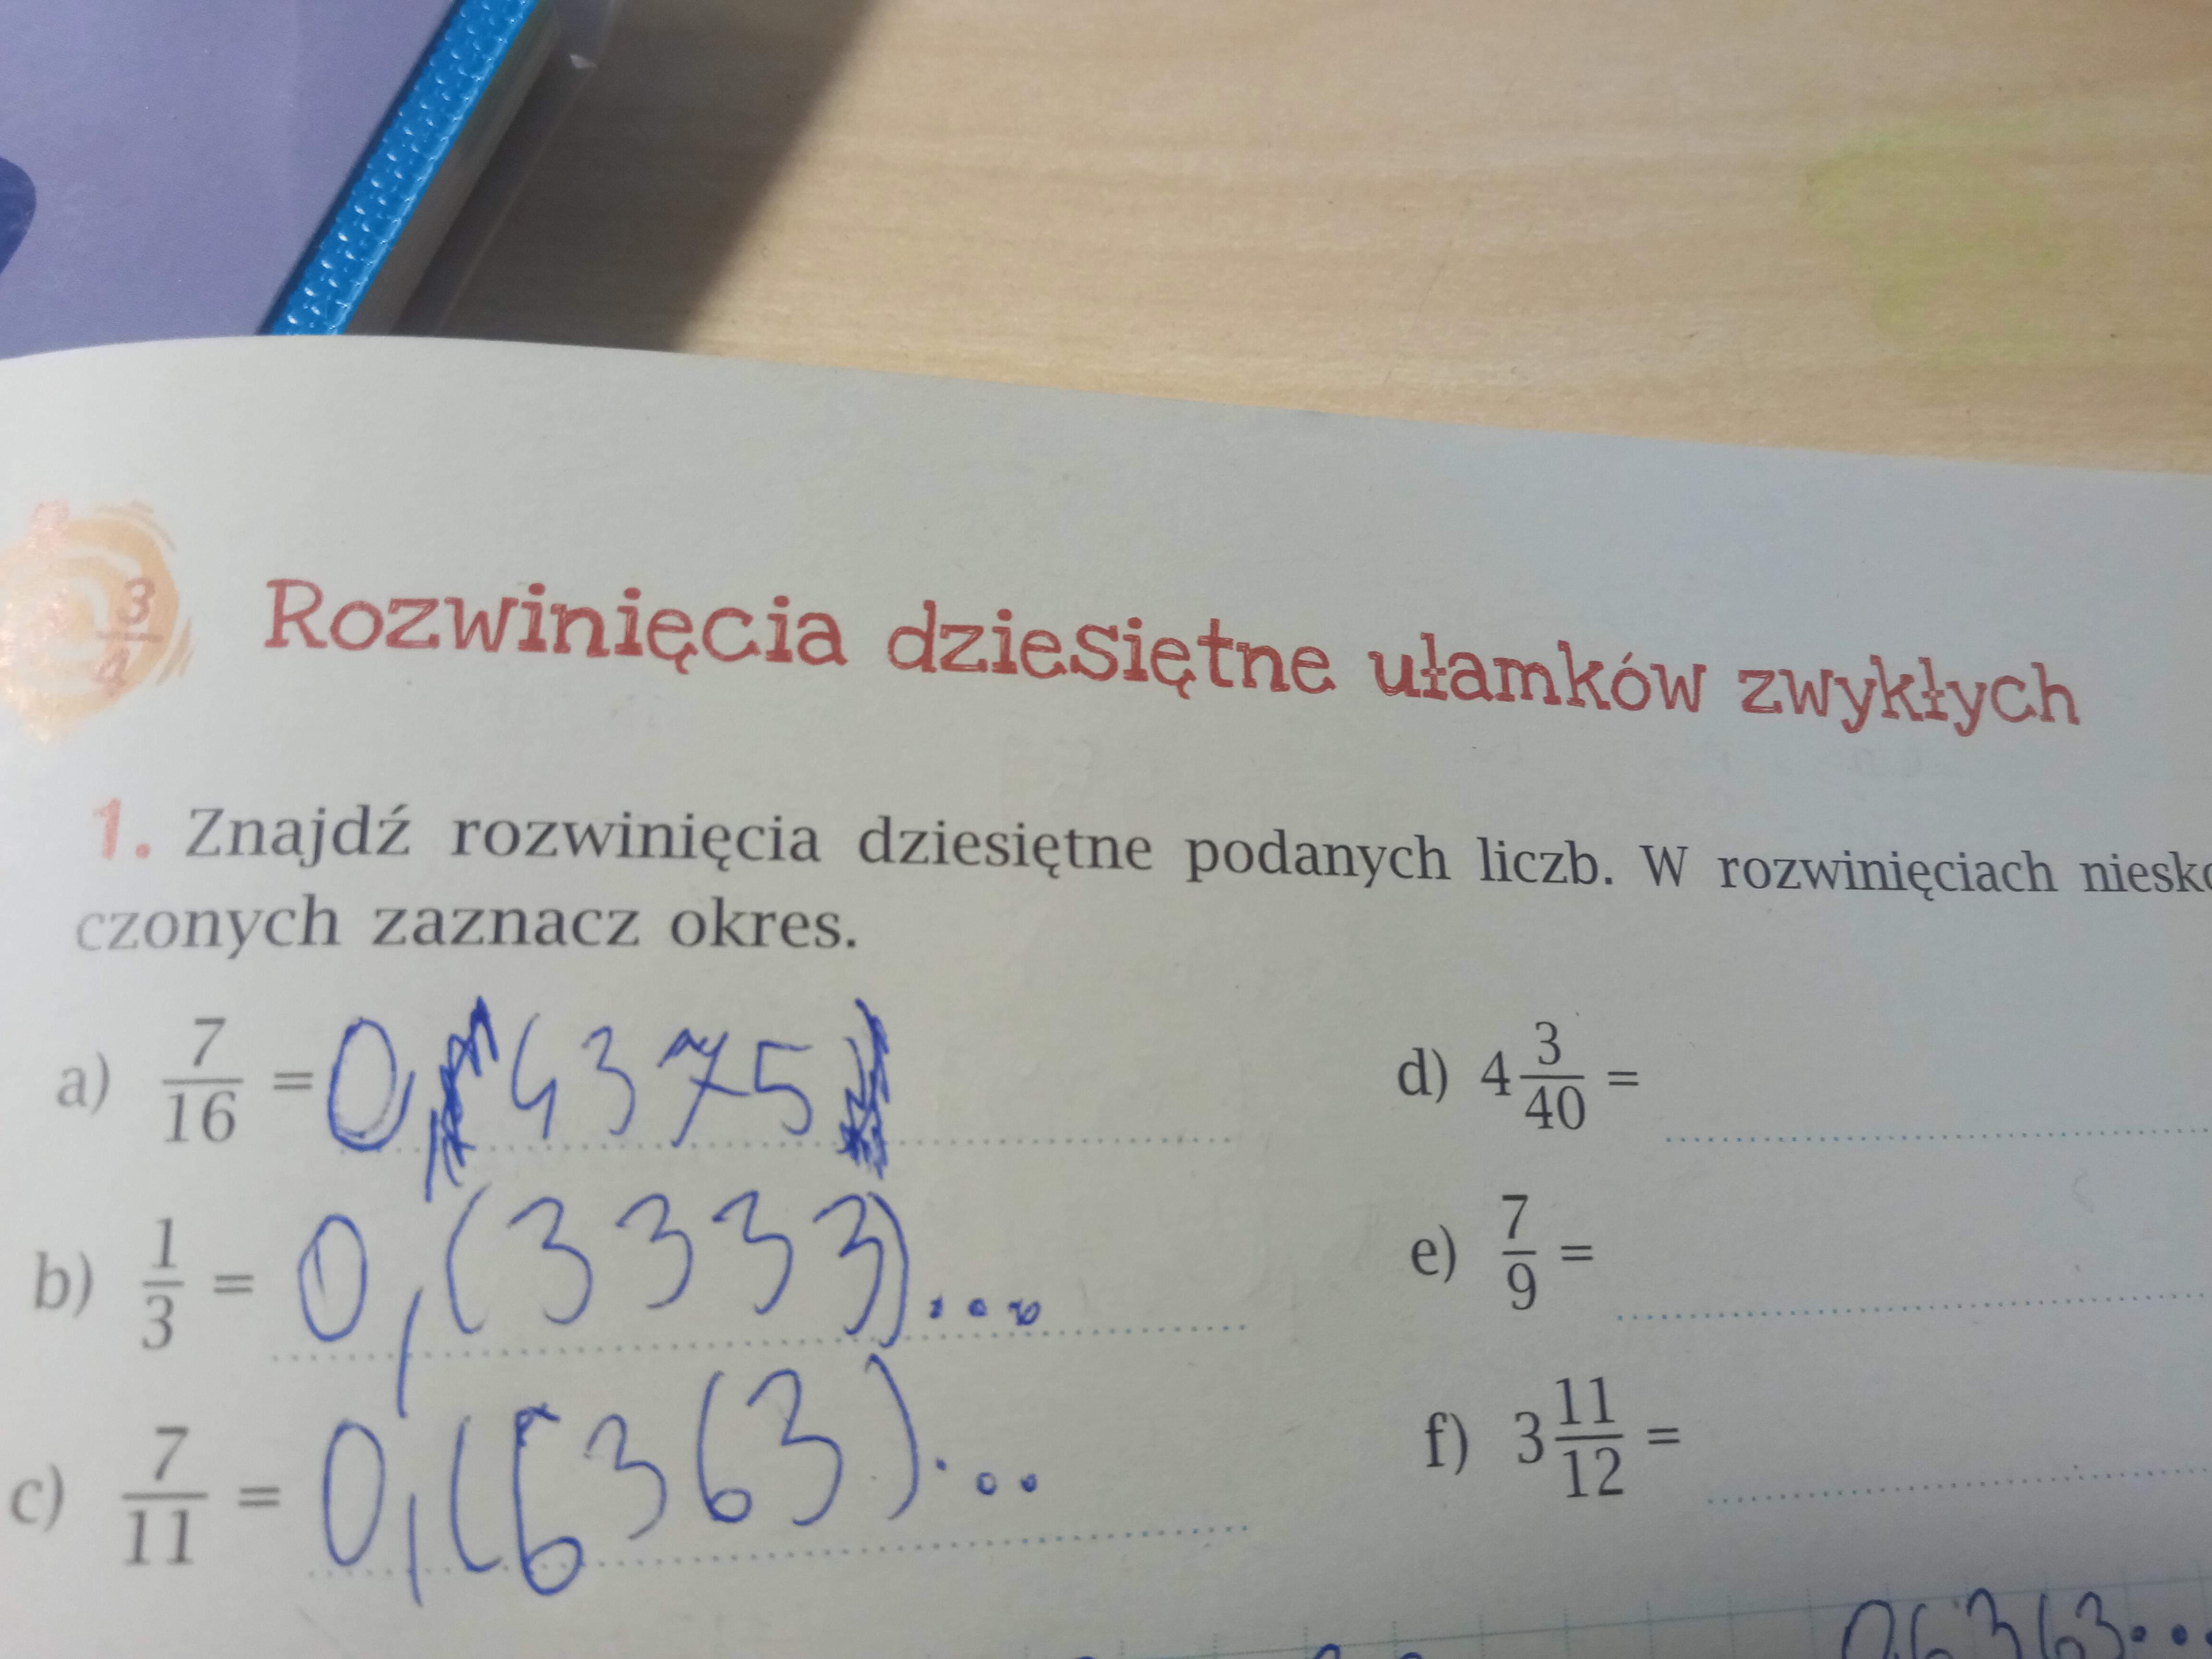 3/4
Rozwinięcia dziesiętne ułamków zwykłych
1. Znajdź rozwinięcia dziesiętne podanych liczb. W rozwinięciach niesko
czonych zaznacz okres.
a) 7/16 = 0,4375
b) 1/3 = 0,(3333)...
c) 7/11 = 0,(6363)...
d) 4 3/40 =
e) 7/9 =
f) 3 11/12 =
0,6363...